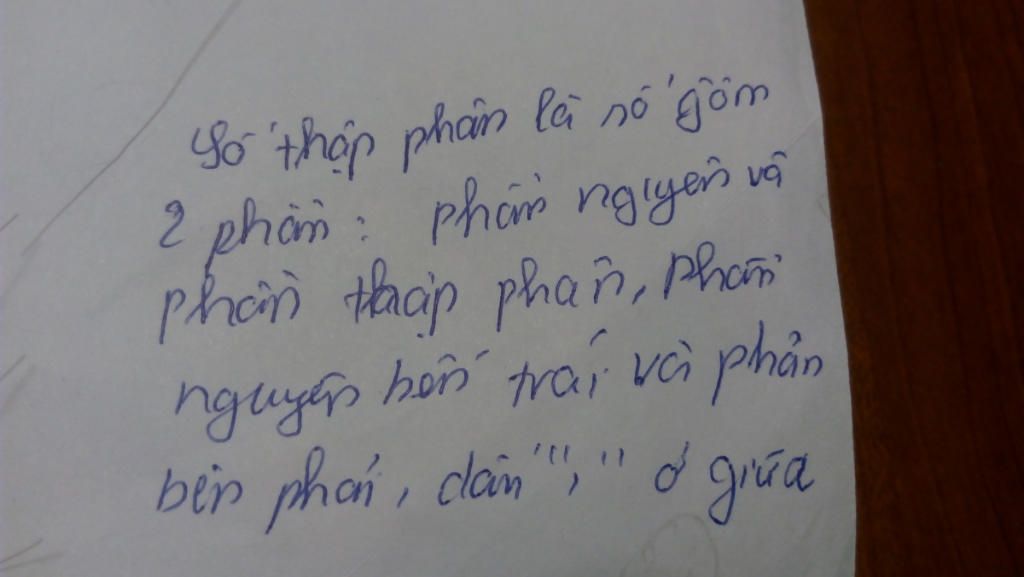 Số thập phân là số gồm
2 phần: phần nguyên và
phần thập phân, phần
nguyên bên trái và phần
bên phải, dấu "," ở giữa